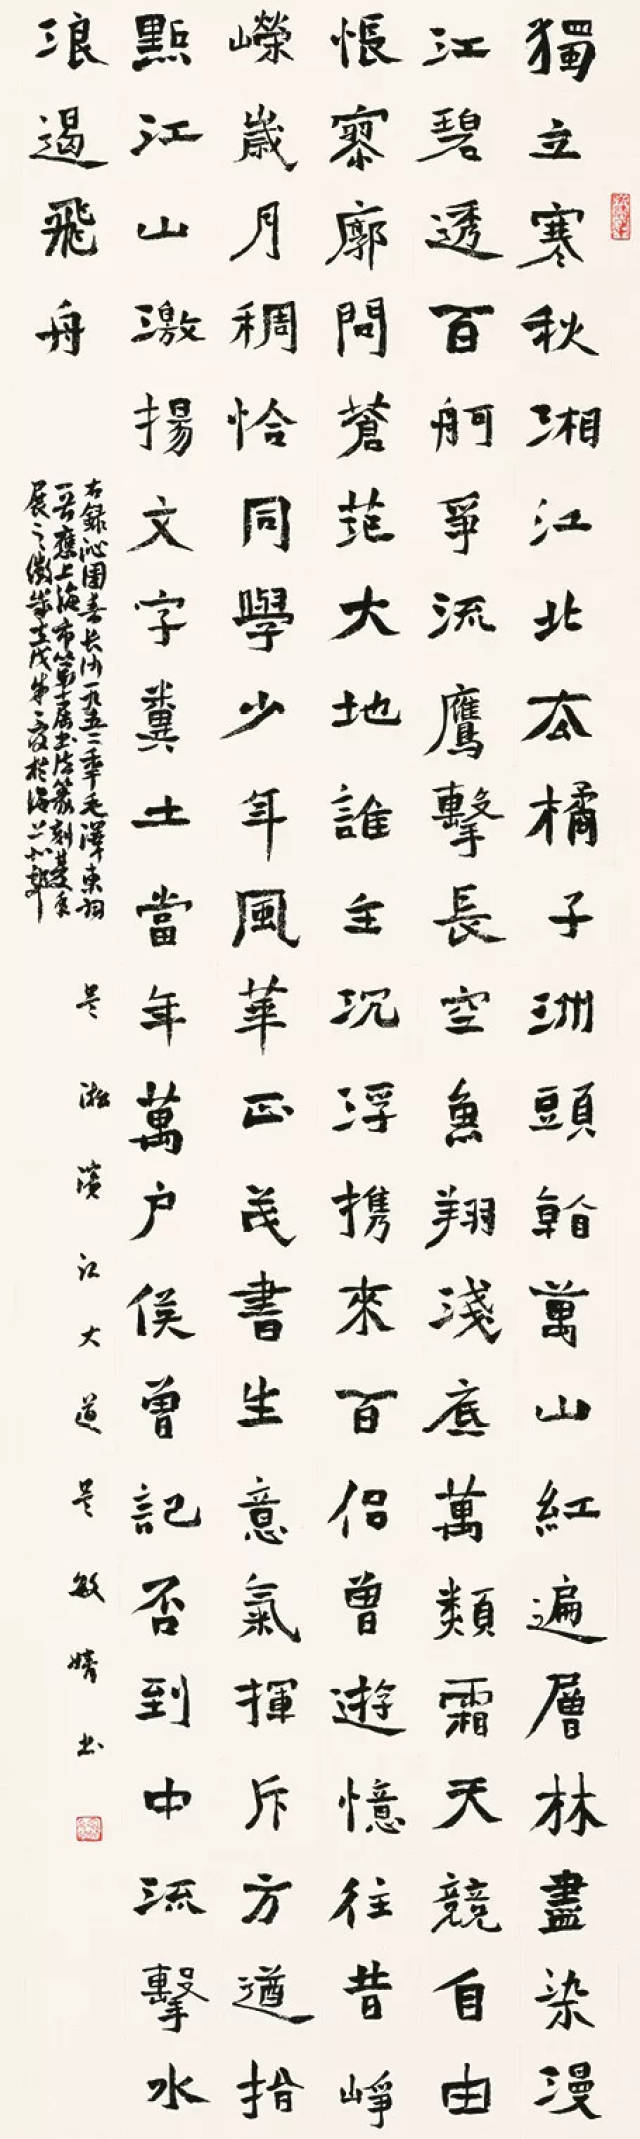 獨立寒秋湘江北去橘子洲頭看萬山紅遍層林盡染漫
江碧透百舸爭流鷹擊長空魚翔淺底萬類霜天競自由
悵寥廓問蒼茫大地誰主沉浮携來百侣曾遊憶往昔崢
嶸歲月稠恰同學少年風華正茂書生意氣揮斥方遒指
點江山激揚文字糞土當年萬户侯曾記否到中流擊水
浪遏飛舟
右録沁園春长沙一九二五年毛澤東詞
應上海市第十届书法篆刻
展之徵
敏婧书